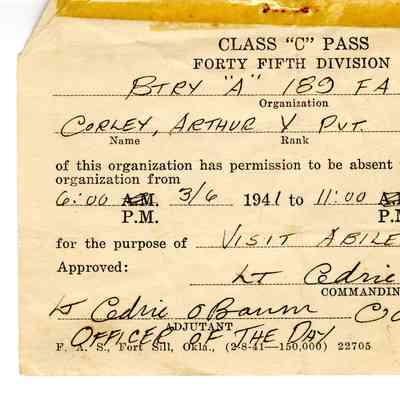 CLASS "C" PASS
FORTY FIFTH DIVISION
BTRY "A" 189 FA
Organization
CORLEY, ARTHUR V PVT.
Name Rank
of this organization has permission to be absent
organization from
6:00 A.M. 3/6 1941 to 11:00
P.M. P.M
for the purpose of VISIT ABILE
Approved:
LT Cedric
COMMANDIN
Lt Cedric O Baum
ADJUTANT
OFFICER OF THE DAY
F. A. S., Fort Sill, Okla., (2-8-41—150,000) 22705